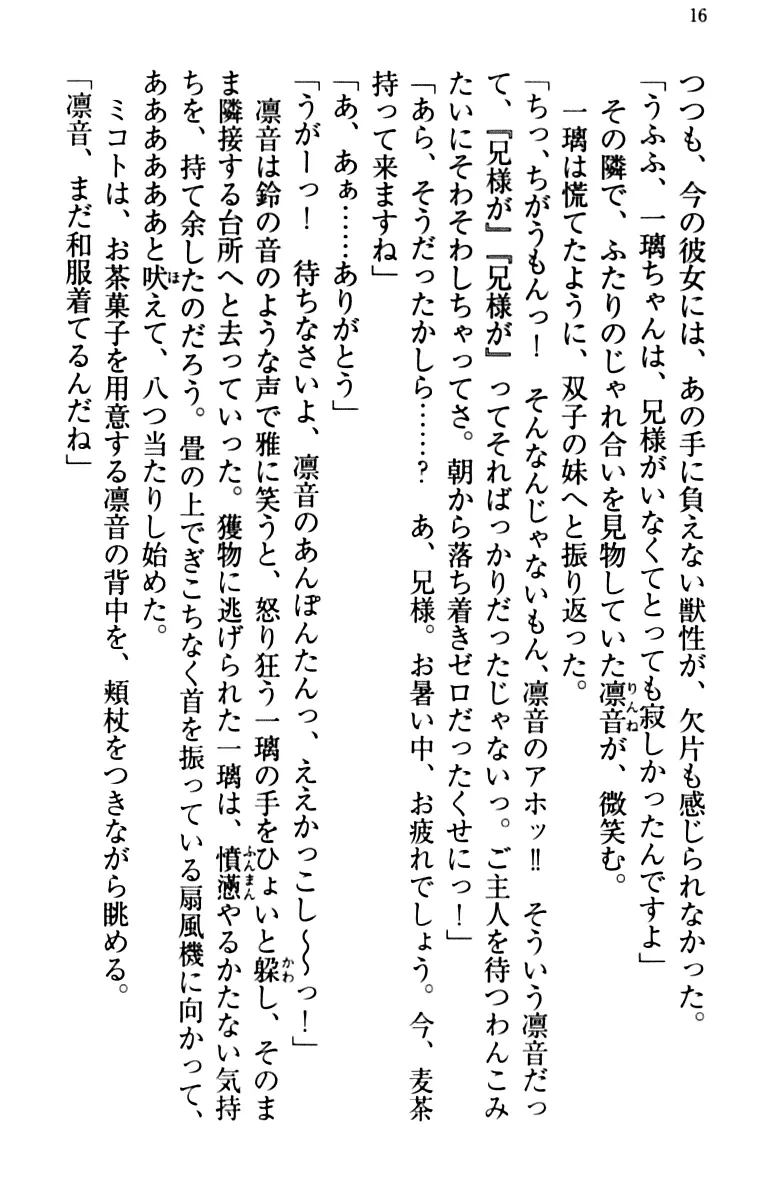 16
つつも、今の彼女には、あの手に負えない獣性が、欠片も感じられなかった。
「うふふ、一璃ちゃんは、兄様がいなくてとっても寂しかったんですよ」
その隣で、ふたりのじゃれ合いを見物していた凛音が、微笑む。
一璃は慌てたように、双子の妹へと振り返った。
「ちっ、ちがうもんっ！　そんなんじゃないもん、凛音のアホッ‼　そういう凛音だっ
て、『兄様が』『兄様が』ってそればっかりだったじゃないっ。ご主人を待つわんこみ
たいにそわそわしちゃってさ。朝から落ち着きゼロだったくせにっ！」
「あら、そうだったかしら……？　あ、兄様。お暑い中、お疲れでしょう。今、麦茶
持って来ますね」
「あ、あぁ……ありがとう」
「うがーっ！　待ちなさいよ、凛音のあんぽんたんっ、ええかっこし～～っ！」
凛音は鈴の音のような声で雅に笑うと、怒り狂う一璃の手をひょいと躱し、そのま
ま隣接する台所へと去っていった。獲物に逃げられた一璃は、憤懣やるかたない気持
ちを、持て余したのだろう。畳の上でぎこちなく首を振っている扇風機に向かって、
ああああああと吠えて、八つ当たりし始めた。
ミコトは、お茶菓子を用意する凛音の背中を、頬杖をつきながら眺める。
「凛音、まだ和服着てるんだね」